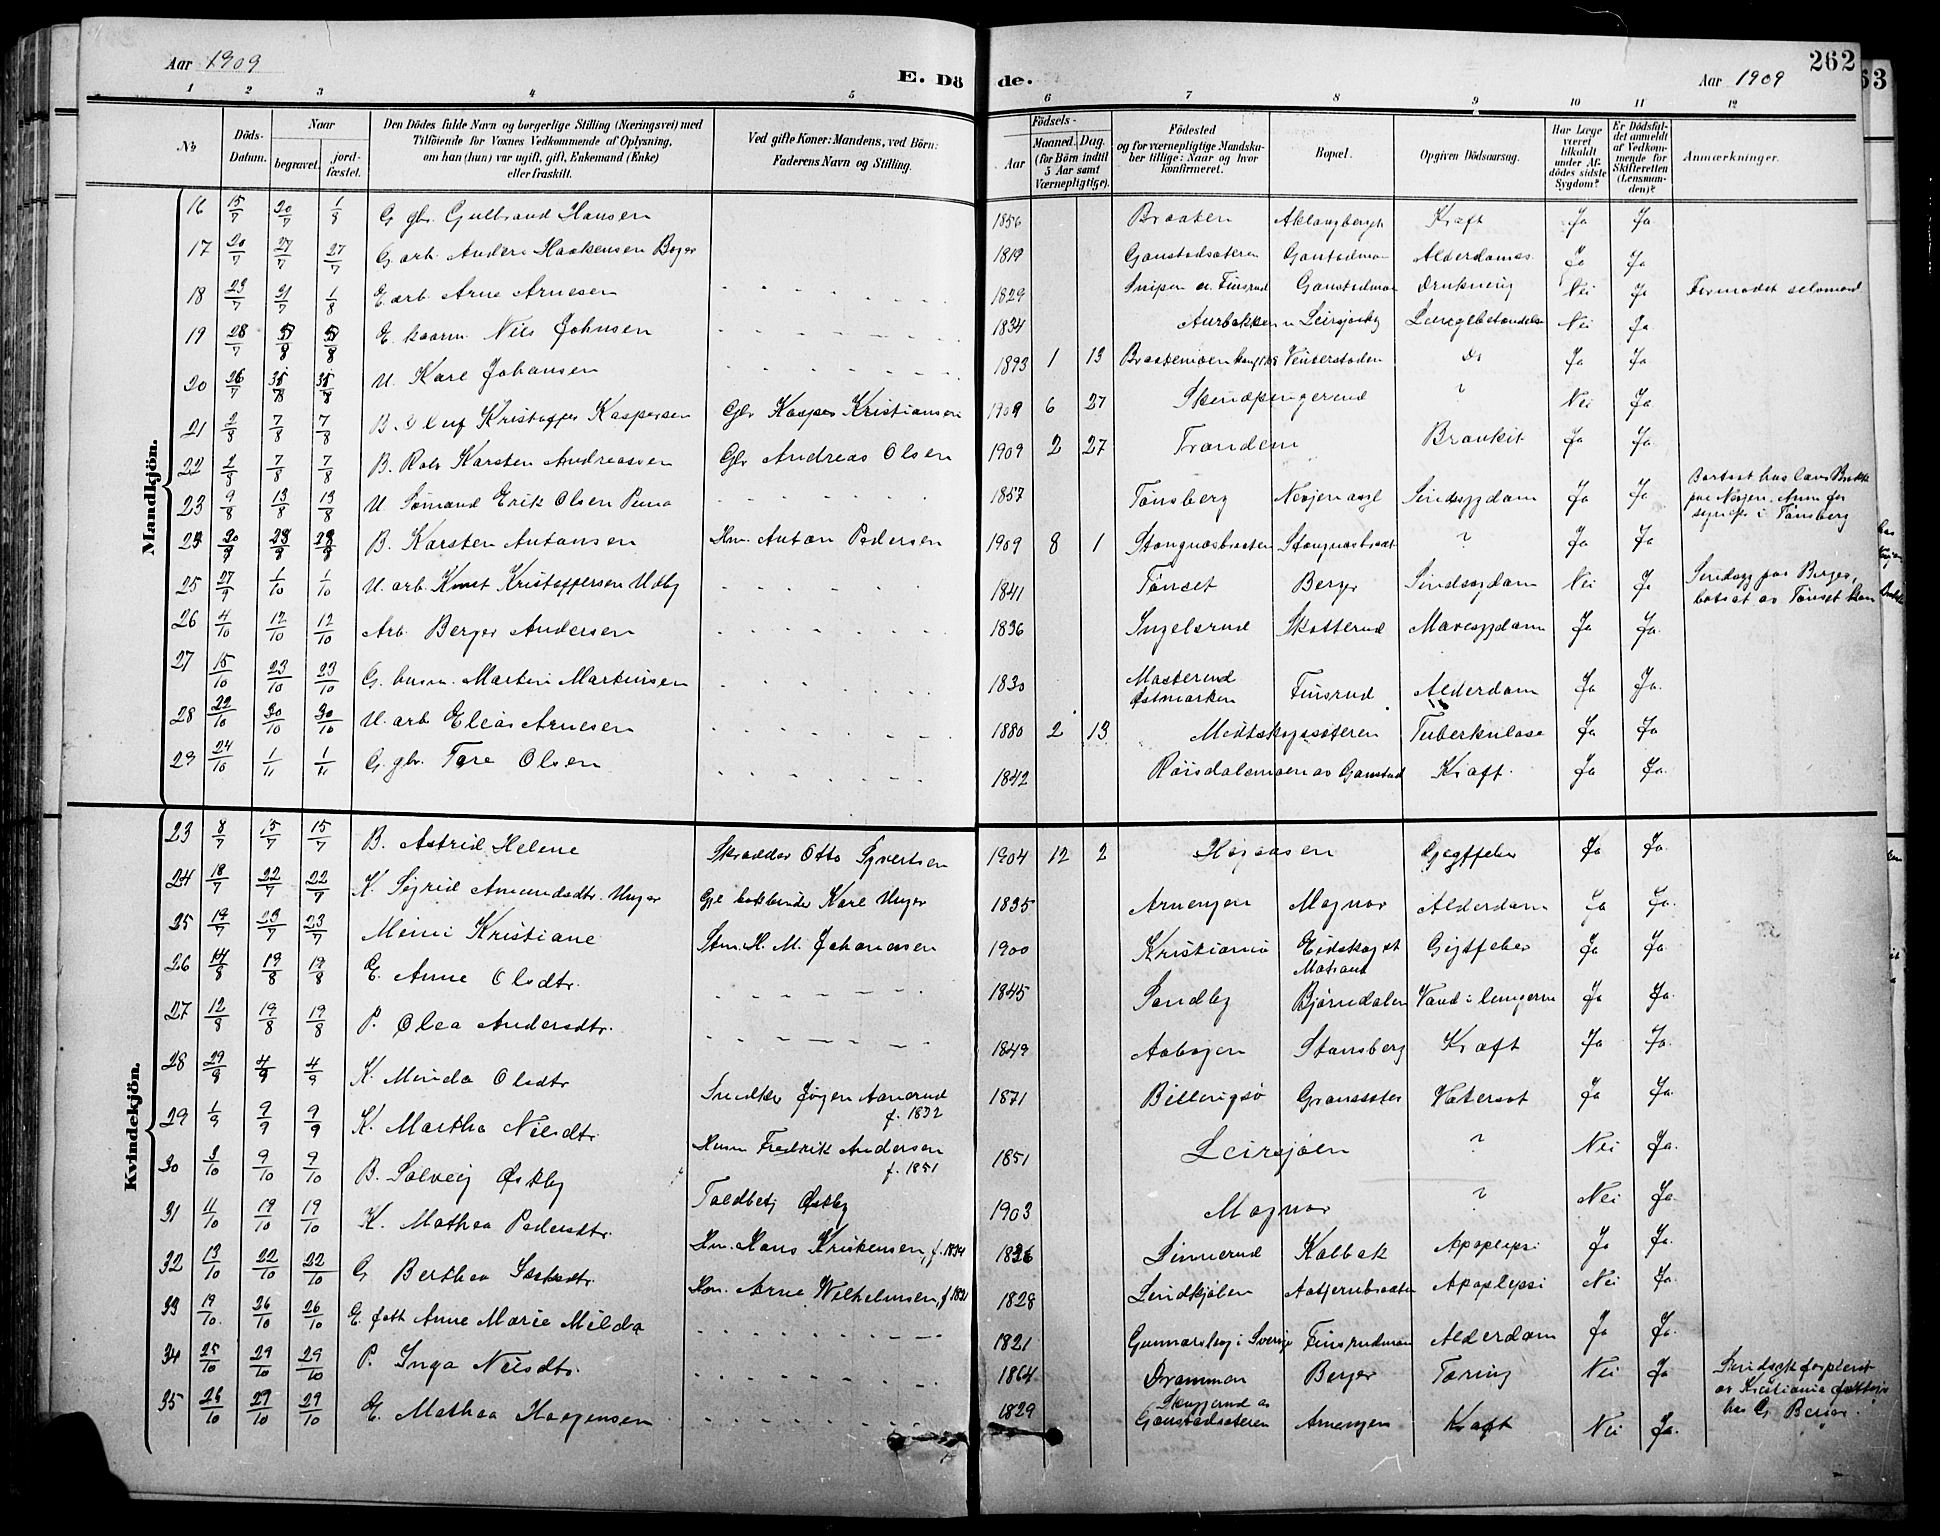 Aar 1909
E. Dö
de.
Aar 1909
262
63
1 2 3 4 5 6 7 8 9 10 11 12
No
Döds-Datum.
Naar
begravet.
jord-fæstet.
Den Dödes fulde Navn og borgerlige Stilling (Næringsvei) med
Tilföiende for Voxnes Vedkommende af Oplysning,
om han (hun) var ugift, gift, Enkemand (Enke)
eller fraskilt.
Ved gifte Koner: Mandens, ved Börn:
Faderens Navn og Stilling.
Födsels-
Aar
Maaned. Dag.
(for Börn indtil
5 Aar samt
Værnepligtige).
Födested
og for værnepligtige Mandska-
ber tillige: Naar og hvor
konfirmeret.
Bopæl.
Opgiven Dödsaarsag.
Har Læge
været
tilkaldt
under Af-
dödes sidste
Sygdom?
Er Dödsfal-
det anmeldt
af Vedkom-
mende for
Skifteretten
(Lensman-
den)?
Anmærkninger.
Mandkjön.
16 15/7 20/7 1/8 G. gbr. Gulbrand Hansen 1856 Braaten Kraft Ja Ja
17 20/7 27/7 27/7 G. arb. Anders Haakensen Berger 1819 Gaustadsæteren Gaustadmoen Alderdoms. Ja Ja
18 23/7 31/7 1/8 E. arb. Arne Arnesen 1829 Snipen a. Finsrud Gaustadmoen Drukning Nei Ja Formodet selvmord
19 28/7 5/8 5/8 E. Nils Johnsen 1834 Leirsjøeby Lungebetændelse Nei Ja
20 26/7 U. Karl Johansen 1893 1 13 Vinterstaden Do Ja Ja
21 2/8 7/8 7/8 B. Oluf Kristoffer Kaspersen Gbr Kasper Kristiansen 1909 6 27 Skindpengerud ? Nei Ja
22 2/8 7/8 7/8 B. Rolv Karsten Andreassen Gbr Andreas Olsen 1909 2 27 Trandem Bronkit Ja Ja
23 9/8 13/8 13/8 U Sømand Erik Olsen 1857 Tønsberg Sindssygdom Ja Ja Bortsat hos
paa Nøigen. Anm for
i Tønsberg
24 B. Karsten Antonsen Hm. Anton Pedersen 1909 8 1 Stangnæsbraaten Stangnæsbraat ? Ja Ja
25 27/9 1/10 1/10 U. arb. Knut Kristoffersen Udby 1841 Tønset Berger Sindssygdom Nei Ja Sindssyg paa Berger,
botsat av Tønset kom
26 4/10 12/10 12/10 Arb. Berger Andersen 1836 Ingelsrud Skotterud Mavesygdom Ja Ja
27 15/10 23/10 23/10 G. husm. Martin Martinsen 1830 Masterud
Østmarken Finsrud Alderdom Ja Ja
28 22/10 30/10 30/10 U. arb Elias Arnesen 1880 2 13 Midtskogssæteren Tuberkulose Ja Ja
29 24/10 1/11 1/11 G. gbr. Tore Olsen 1842 Røisdalsmoen av Gaustad Kraft Ja Ja
Kvindekjön.
23 8/7 15/7 15/7 B. Astrid Helene Skrædder Otto Syvertsen 1904 12 2 Gigtfeber Ja Ja
24 18/7 22/7 22/7 K. Sigrid Amundsdtr. Unger Karl Unger 1835 Arnengen Magnor Alderdom Ja Ja
25 19/7 23/7 23/7 Mimi Kristiane Stm. H. M. Johansen 1900 Kristiania Eidskog st
Matrand Gigtfeber Ja Ja
26 14/8 19/8 19/8 E. Anne Olsdtr. 1845 Sandby Bjørndalen Vand i lungerne Ja Ja
27 12/8 19/8 19/8 P. Olea Andersdtr. 1849 Aabogen Stansberg Kraft Ja Ja
28 4/9 4/9 K. Minda Olsdtr Snedker Jørgen Aanerud
f. 1832 1871 Billingsø Gransæter Vatersot Ja Ja
29 1/9 9/9 9/9 K. Martha Nilsdtr. Husm Fredrik Andersen
f. 1851 1851 Leirsjøen ? Nei Ja
30 3/10 9/10 9/10 B. Solveig Østby Toldbetj Østby 1903 Magnor ? Nei Ja
31 11/10 19/10 19/10 K. Mathea Pedersdtr. Hm. Hans Kristensen, f. 1834 1836 Linnerud Kalbak Apoplexi Ja Ja
32 13/10 22/10 22/10 G Berthea Hm. Arne Wilhelmsen, f 1831 1828 Lindkjølen Aatjernbraaten Apoplexsi Nei Ja
33 19/10 26/10 26/10 E. fatt. Anne Marie Milda 1821 Gunnarskog i Sverige Finsrudmoen Alderdom Ja Ja
34 25/10 29/10 29/10 P. Inga Nilsdtr. 1864 Drammen Berger Tæring Nei Ja Sindssyk forpleiet
av Kristiania
hos G. Berger.
35 26/10 29/10 29/10 E. Mathea Haagensen 1829 Skuggerud av
Gaustadsæteren Arnengen Kraft Nei Ja